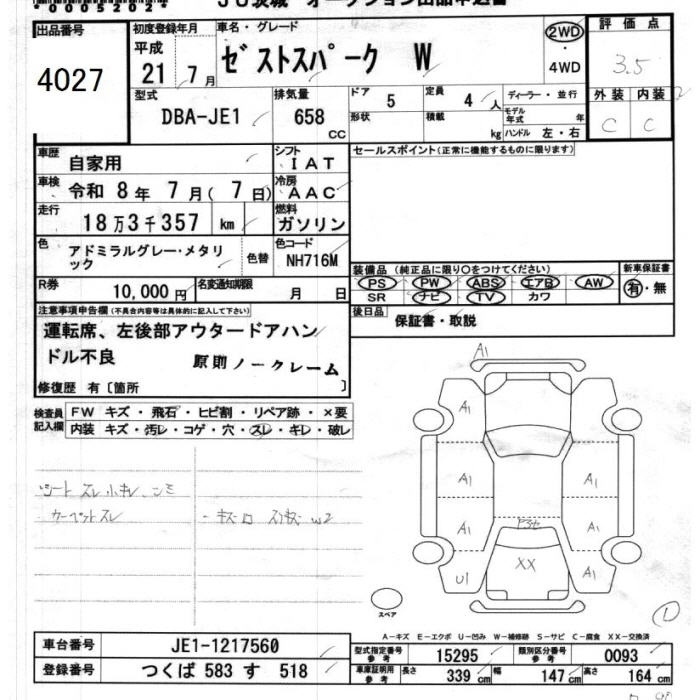 00052024
JU茨城 オークション出品申込書
出品番号
4027
初度登録年月
平成
21年 7月
車名・グレード
ゼストスパーク W
2WD
・
4WD
評価点
3.5
外装 内装
C C
型式
DBA-JE1
排気量
658
CC
ドア
5
定員
4 人
ディーラー・並行
形状
積載
kg
モデル
年式
年
ハンドル 左・右
車歴
自家用
シフト
IAT
セールスポイント(正常に機能するものに限ります)
車検
令和 8年 7月( 7日)
冷房
AAC
走行
18万3千357 km
燃料
ガソリン
色
アドミラルグレー・メタリ
ック
色替
色コード
NH716M
装備品 (純正品に限り○をつけてください)
PS PW ABS エアB AW
SR ナビ TV カワ
新車保証書
有・無
R券
10,000円
名変通知期限
月 日
後日品
保証書・取説
注意事項申告欄(不具合内容等は具体的に記入して下さい)
運転席、左後部アウタードアハン
ドル不良
原則ノークレーム
修復歴 有〔箇所 〕
検査員
記入欄
FW キズ・飛石・ヒビ割・リペア跡・×要
内装 キズ・汚レ・コゲ・穴・スレ・キレ・破レ
シート スレ 小キレ シミ
カーペットスレ
A1
A1
A1
A1
A1
A1
U1
XX
A1
スペア
A-キズ E-エクボ U-凹み W-補修跡 S-サビ C-腐食 XX-交換済
車台番号
JE1-1217560
登録番号
つくば 583 す 518
型式指定番号
参考
15295
類別区分番号
参考
0093
車庫証明用
参考
長さ
339 cm
幅
147 cm
高さ
164 cm